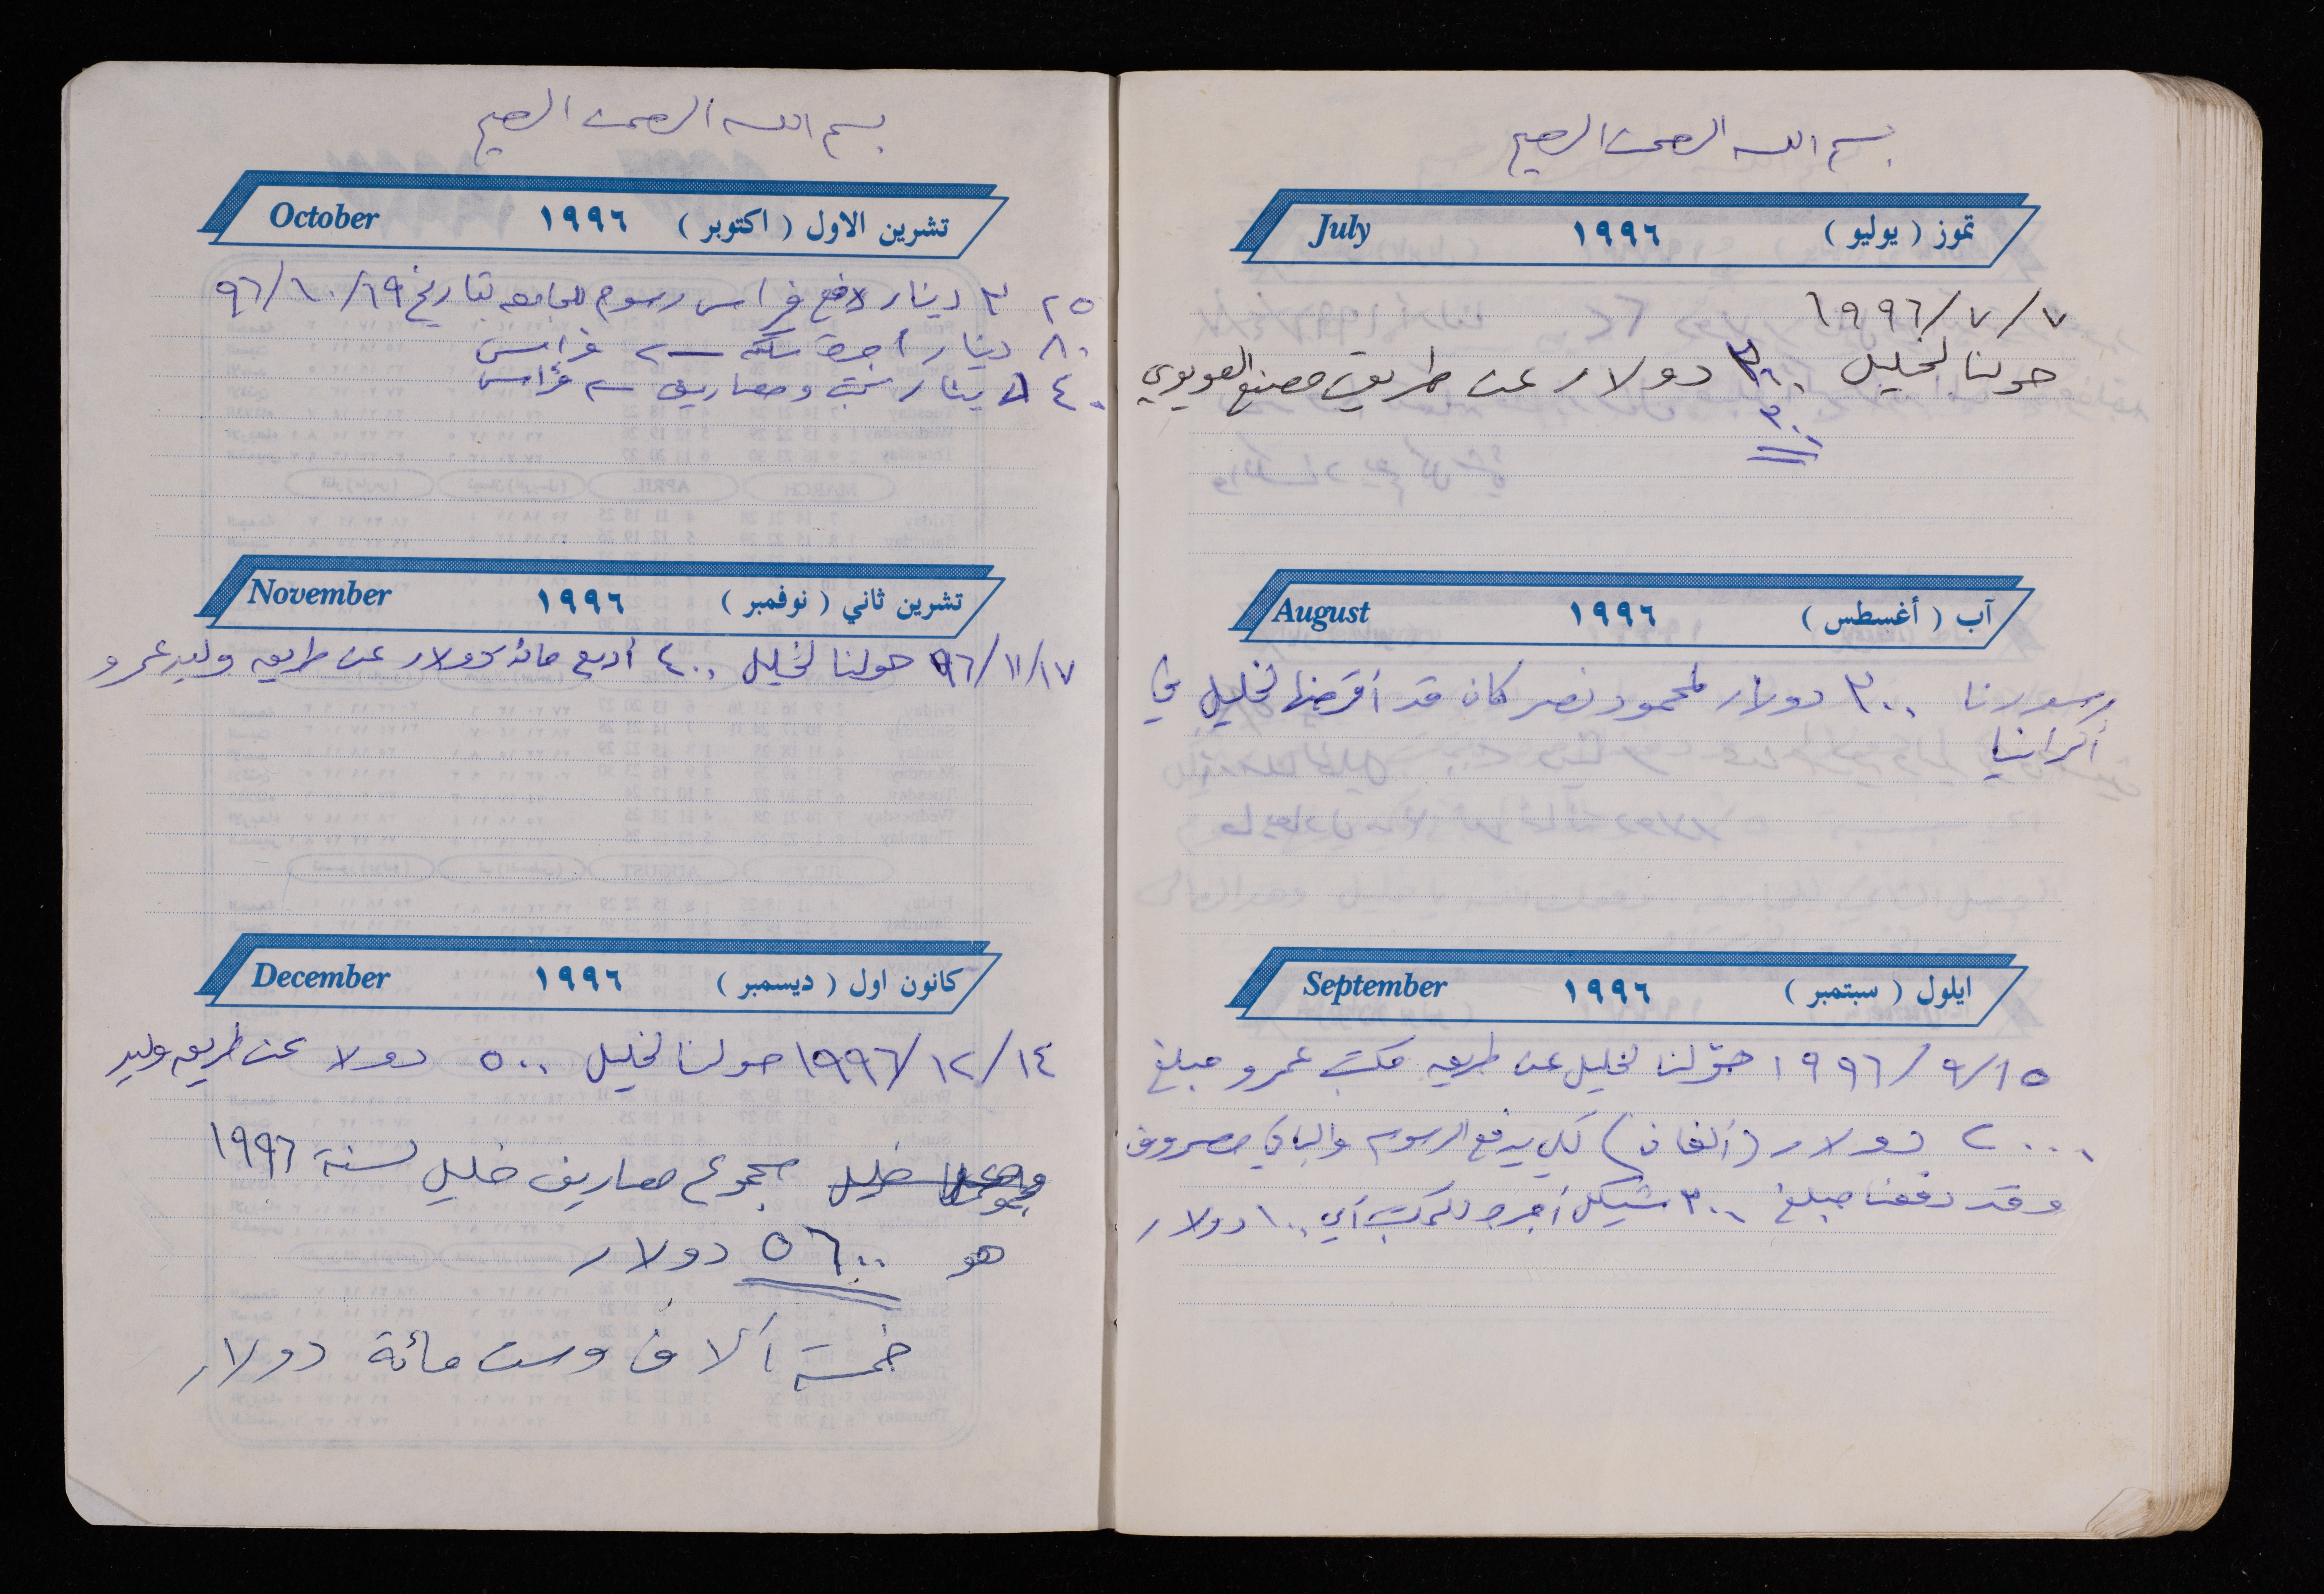 بسم الله الرحمن الرحيم
تموز ( يوليو ) ١٩٩٦ July
٧/٧/١٩٩٦
حولنا لخليل ٣٠٠ دولار عن طريق مصنع العويوي
٣٠٠
آب ( أغسطس ) ١٩٩٦ August
٣٠٠ دولار لمحمود نصر كان قد أقرضها لخليل في
أكرانيا
ايلول ( سبتمبر ) ١٩٩٦ September
١٥/٩/١٩٩٦ حوّلنا لخليل عن طريق مكتب عمرو مبلغ
٢٠٠٠ دولار (ألفان) لكي يدفع الرسوم والباقي مصروف
وقد دفعنا مبلغ ٣٠٠ شيكل أجرة للمكتب أي ١٠٠ دولار
بسم الله الرحمن الرحيم
تشرين الاول ( اكتوبر ) ١٩٩٦ October
٣٢٥ دينار دفع فراس رسوم للجامعه بتاريخ ١٩/١٠/٩٦
٨٠ دينار أجرة سكن فراس
٤٠ دينار كتب ومصاريف فراس
تشرين ثاني ( نوفمبر ) ١٩٩٦ November
١٧/١١/٩٦ حولنا لخليل ٤٠٠ أربع مائة دولار عن طريق وليد عمرو
كانون اول ( ديسمبر ) ١٩٩٦ December
١٤/١٢/١٩٩٦ حولنا لخليل ٥٠٠ دولا عن طريق وليد
خليل مجموع مصاريف خليل لسنة ١٩٩٦
هو ٥٦٠٠ دولار
خمسة آلاف وست مائة دولار